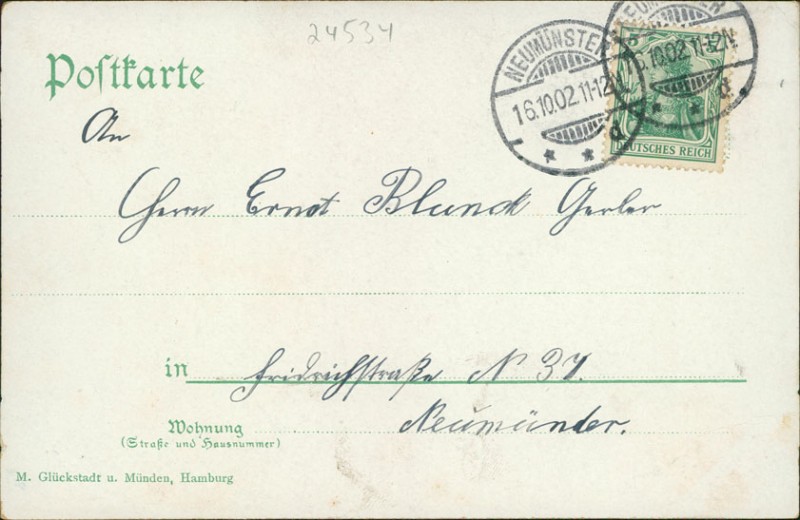 24534
Postkarte
NEUMÜNSTER
16.10.02.11-12N.
d.
NEUMÜNSTER
16.10.02.11-12N.
d.
5
DEUTSCHES REICH
An
Herrn Ernst Blunck Gerber
in Fridrichstraße N 37.
Wohnung
(Straße und Hausnummer)
Neumünster.
M. Glückstadt u. Münden, Hamburg